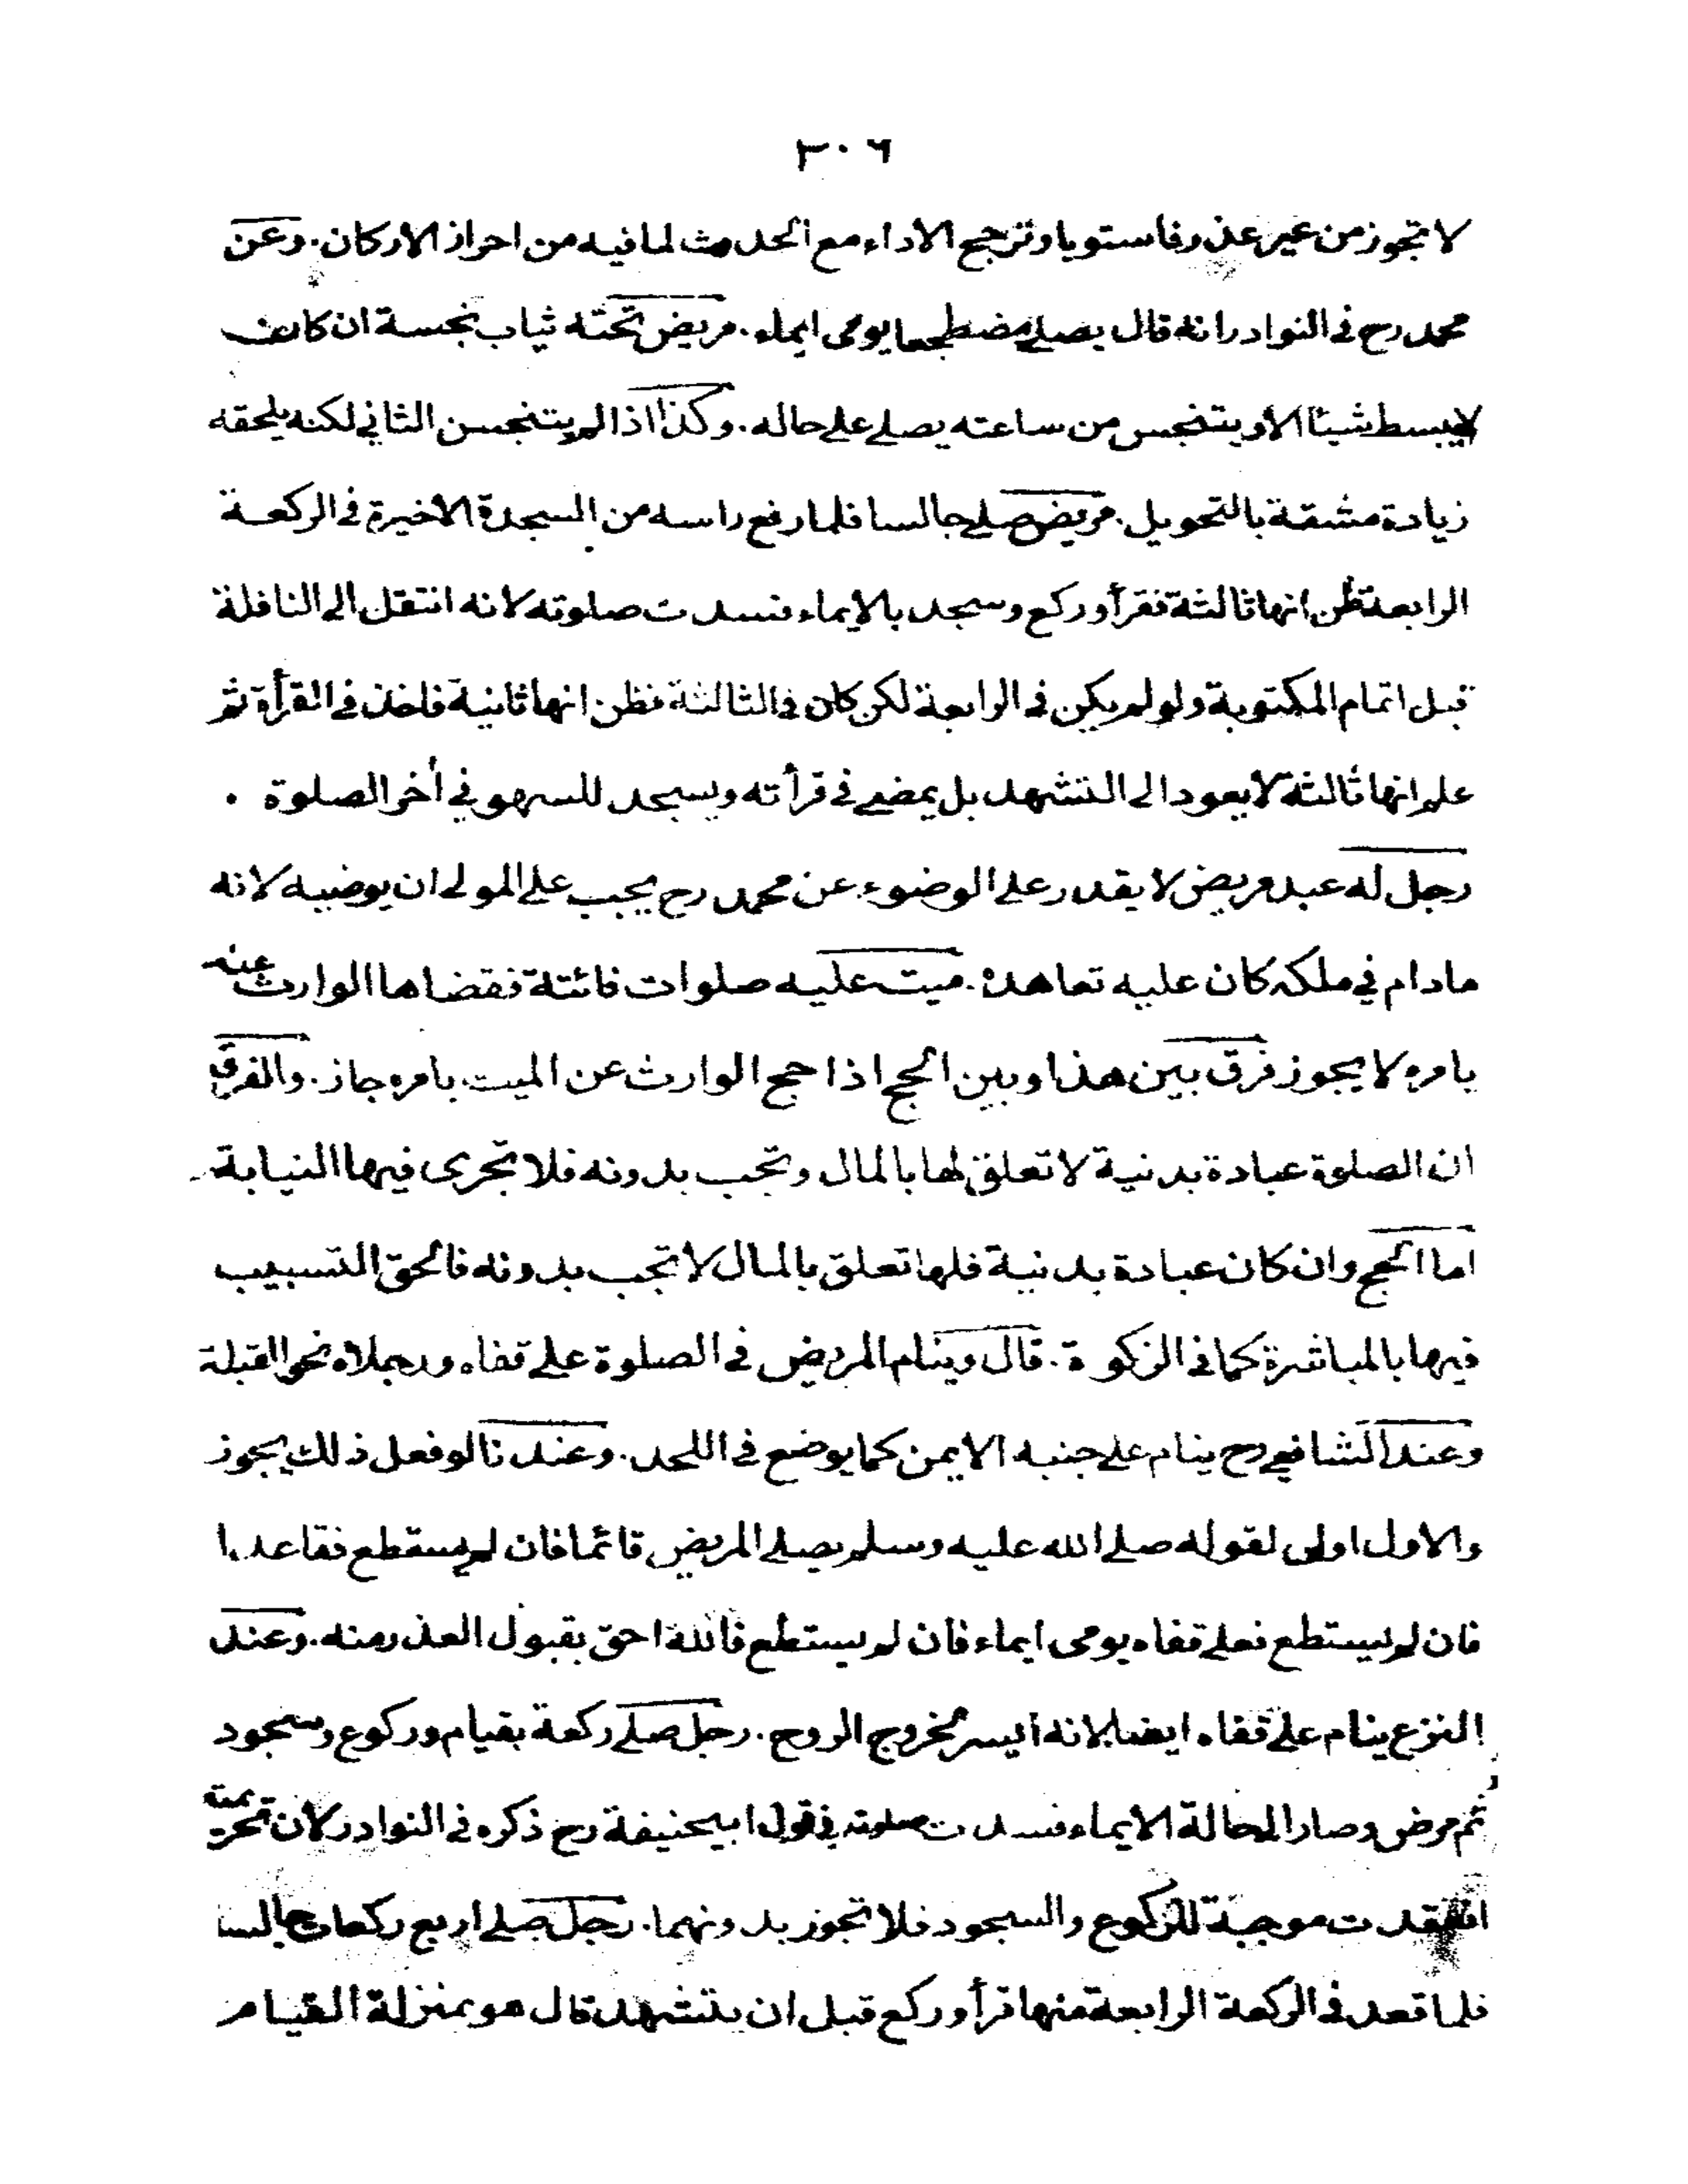 ٣٠٦
لا تجوز من غير عذر فاستويا وترجح الاداء مع الحدث لما فيه من احراز الاركان. وعن
محمد رح فى النوادر انه قال يصلے مضطجعا يومى ايماء. مريض تحته ثياب نجسة ان كان
لا يبسط شيئا الا ويتنجس من ساعته يصلے علے حاله. وكذا اذا لم يتنجس الثانى لكنه يلحقه
زيادة مشقة بالتحويل. مريض صلے جالسا فلما رفع راسه من السجدة الاخيرة فى الركعة
الرابعة ظن انها ثالثة فقرأ وركع وسجد بالايماء فسدت صلوته لانه انتقل الى النافلة
قبل اتمام المكتوبة ولو لم يكن فى الرابعة لكن كان فى الثالثة فظن انها ثانية فاخذ فى القرأة ثم
علم انها ثالثة لا يعود الى التشهد بل يمضے فى قرأته ويسجد للسهو في أخر الصلوة .
رجل له عبد مريض لا يقدر علے الوضوء عن محمد رح يجب علے المولے ان يوضيه لانه
مادام في ملكه كان عليه تعاهده. ميت عليه صلوات فائتة فقضاها الوارث عنه
بامره لا يجوز فرق بين هذا وبين الحج اذا حج الوارث عن الميت بامره جاز. والفرق
ان الصلوة عبادة بدنية لا تعلق لها بالمال وتجب بدونه فلا تجرى فيها النيابة
اما الحج وان كان عبادة بدنية فلها تعلق بالمال لا تجب بدونه فالحق التسبيب
فيها بالمباشرة كما فى الزكوة. قال وينام المريض فى الصلوة علے قفاه ورجلاه نحو القبلة
وعند الشافعے رح ينام علے جنبه الايمن كما يوضع فى اللحد. وعندنا لو فعل ذلك يجوز
والاول اولى لقوله صلے الله عليه وسلم يصلے المريض قائما فان لم يستطع فقاعدا
فان لم يستطع فعلے قفاه يومى ايماء فان لم يستطع فالله احق بقبول العذر منه. وعند
النزع ينام علے قفاه ايضا لانه أيسر لخروج الروح. رجل صلے ركعة بقيام وركوع وسجود
ثم مرض وصار الى حالة الايماء فسدت صلوته في قول ابيحنيفة رح ذكره فى النوادر لان تحريمته
انعقدت موجبة للركوع والسجود فلا تجوز بدونهما. رجل صلے اربع ركعات جالسا
فلما قعد فى الركعة الرابعة منها قرأ وركع قبل ان يتشهد قال هو بمنزلة القيام